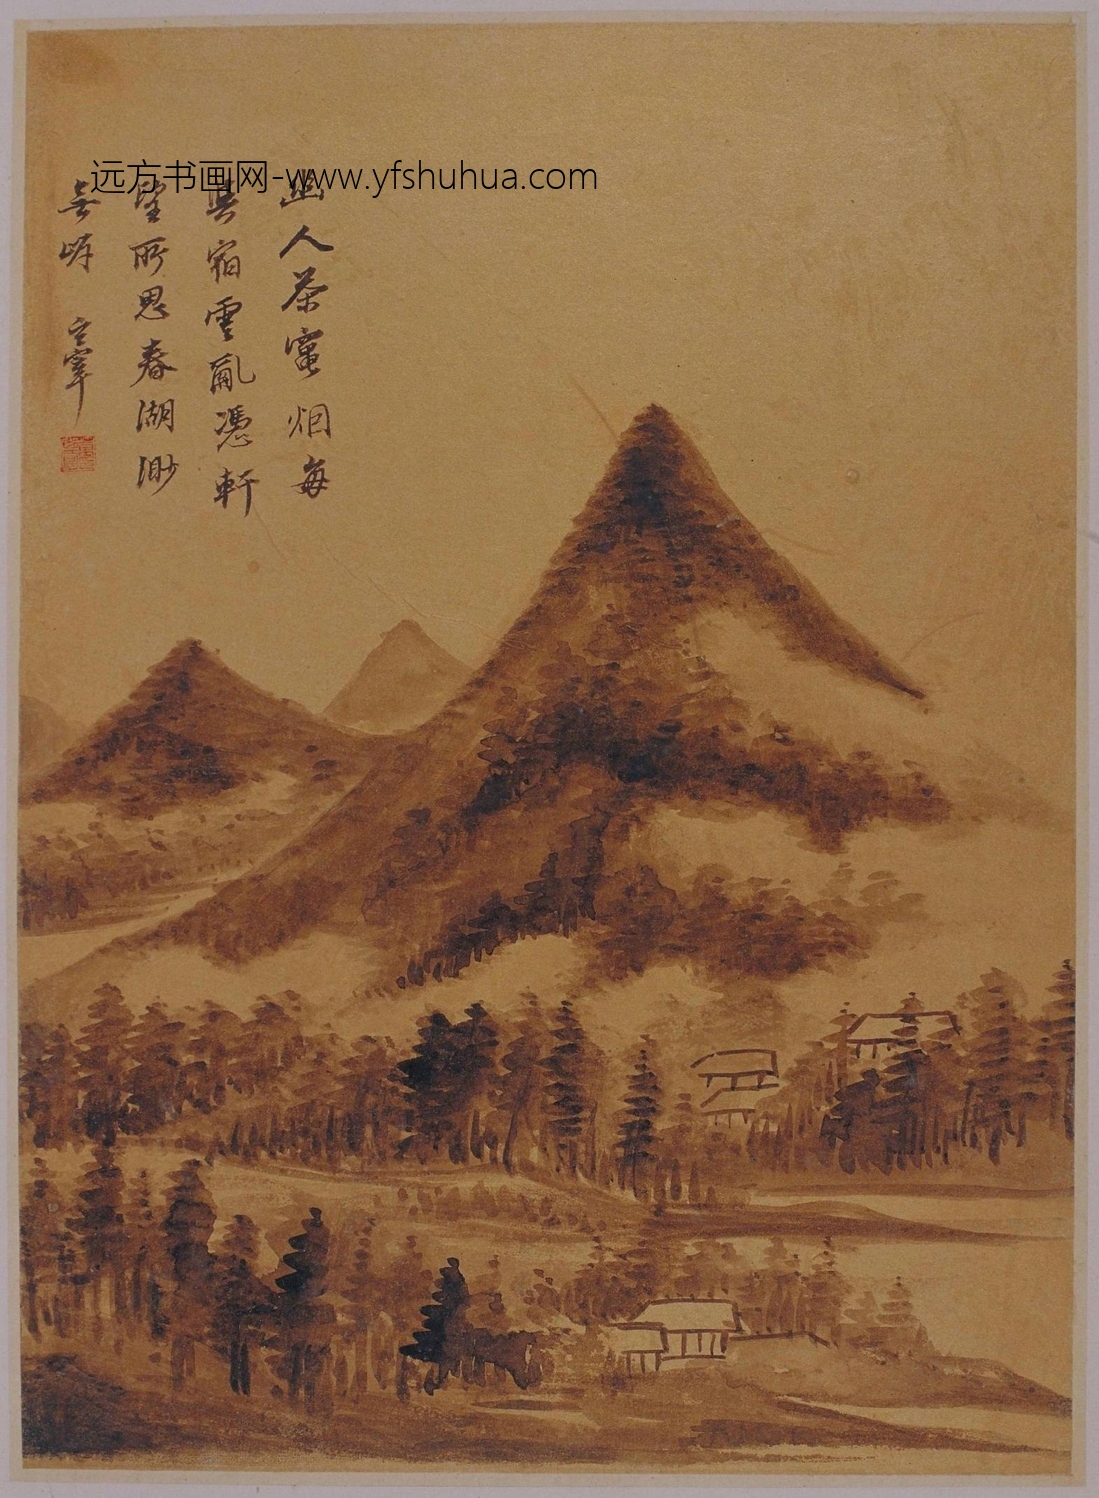 远方书画网-www.yfshuhua.com
幽人茶竈烟每
與宿雲亂憑軒
望所思春湖渺
無畔 玄宰